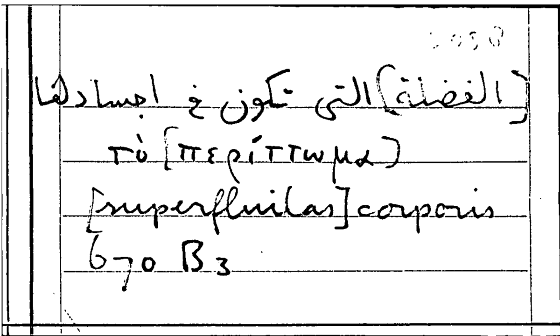 [الفضلة] التى تكون فى اجسادها
τὸ [περίττωμα)
[superfluitas] corporis
670 B 3